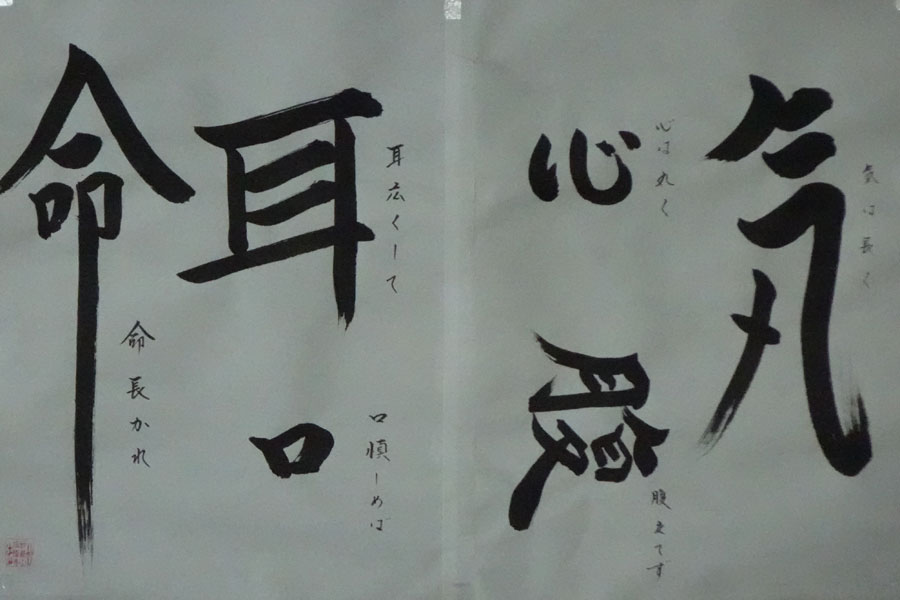 気
気は長く
心
心は丸く
腹
腹立てず
耳
耳広くして
口
口慎しめば
命
命長かれ